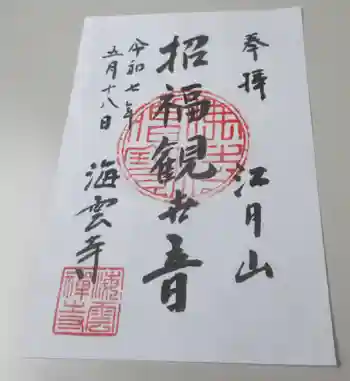 奉拝
江月山
招福観世音
令和七年
五月十八日
海雲寺
海雲
禅寺